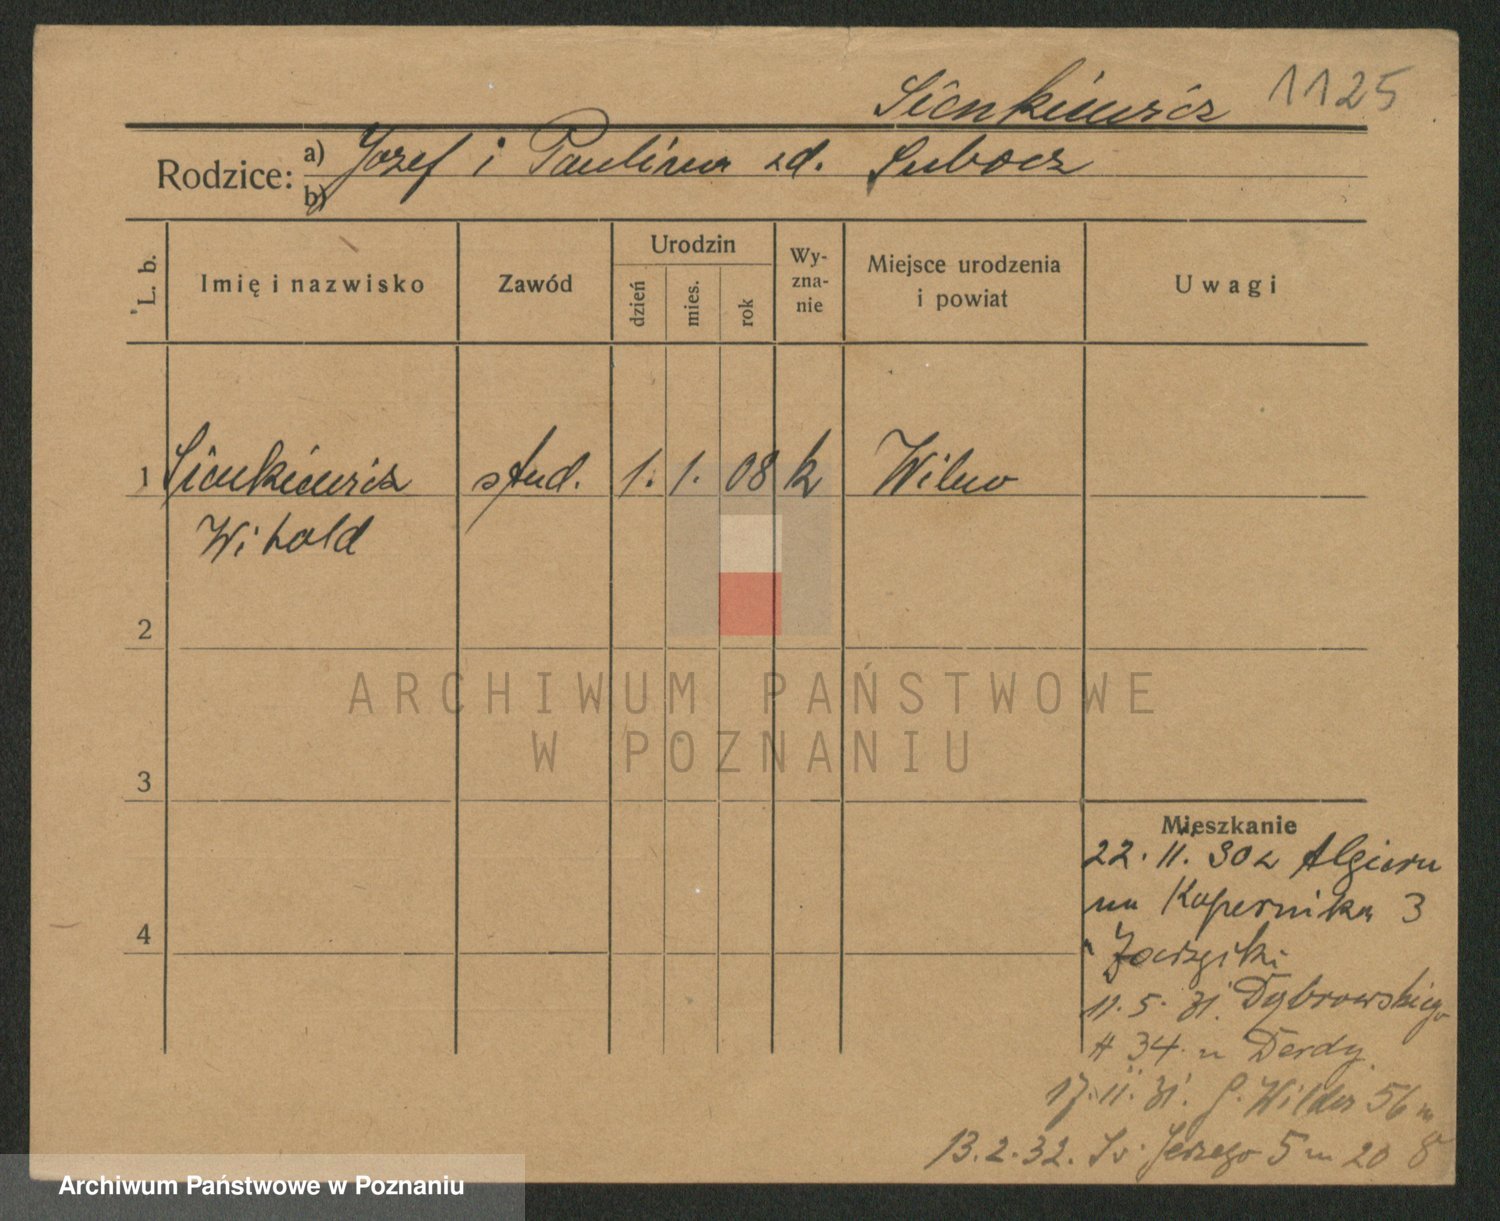 Sienkiewicz 1125
Rodzice: a) Józef i Paulina zd. Subocz
b)
L. b.
Imię i nazwisko
Zawód
Urodzin
dzień
mies.
rok
Wy-
zna-
nie
Miejsce urodzenia
i powiat
Uwagi
1 Sienkiewicz stud. 1. 1. 08 k Wilno
Witold
2
3
4
ARCHIWUM PAŃSTWOWE
W POZNANIU
Mieszkanie
22. 11. 30 z Algieru
na Kopernika 3
11. 5. 31. Dąbrowskiego
34 u Derdy
17. 11. 31. G. Wilda 56 m
8
13. 2. 32. Św. Jerzego 5 m 20
Archiwum Państwowe w Poznaniu